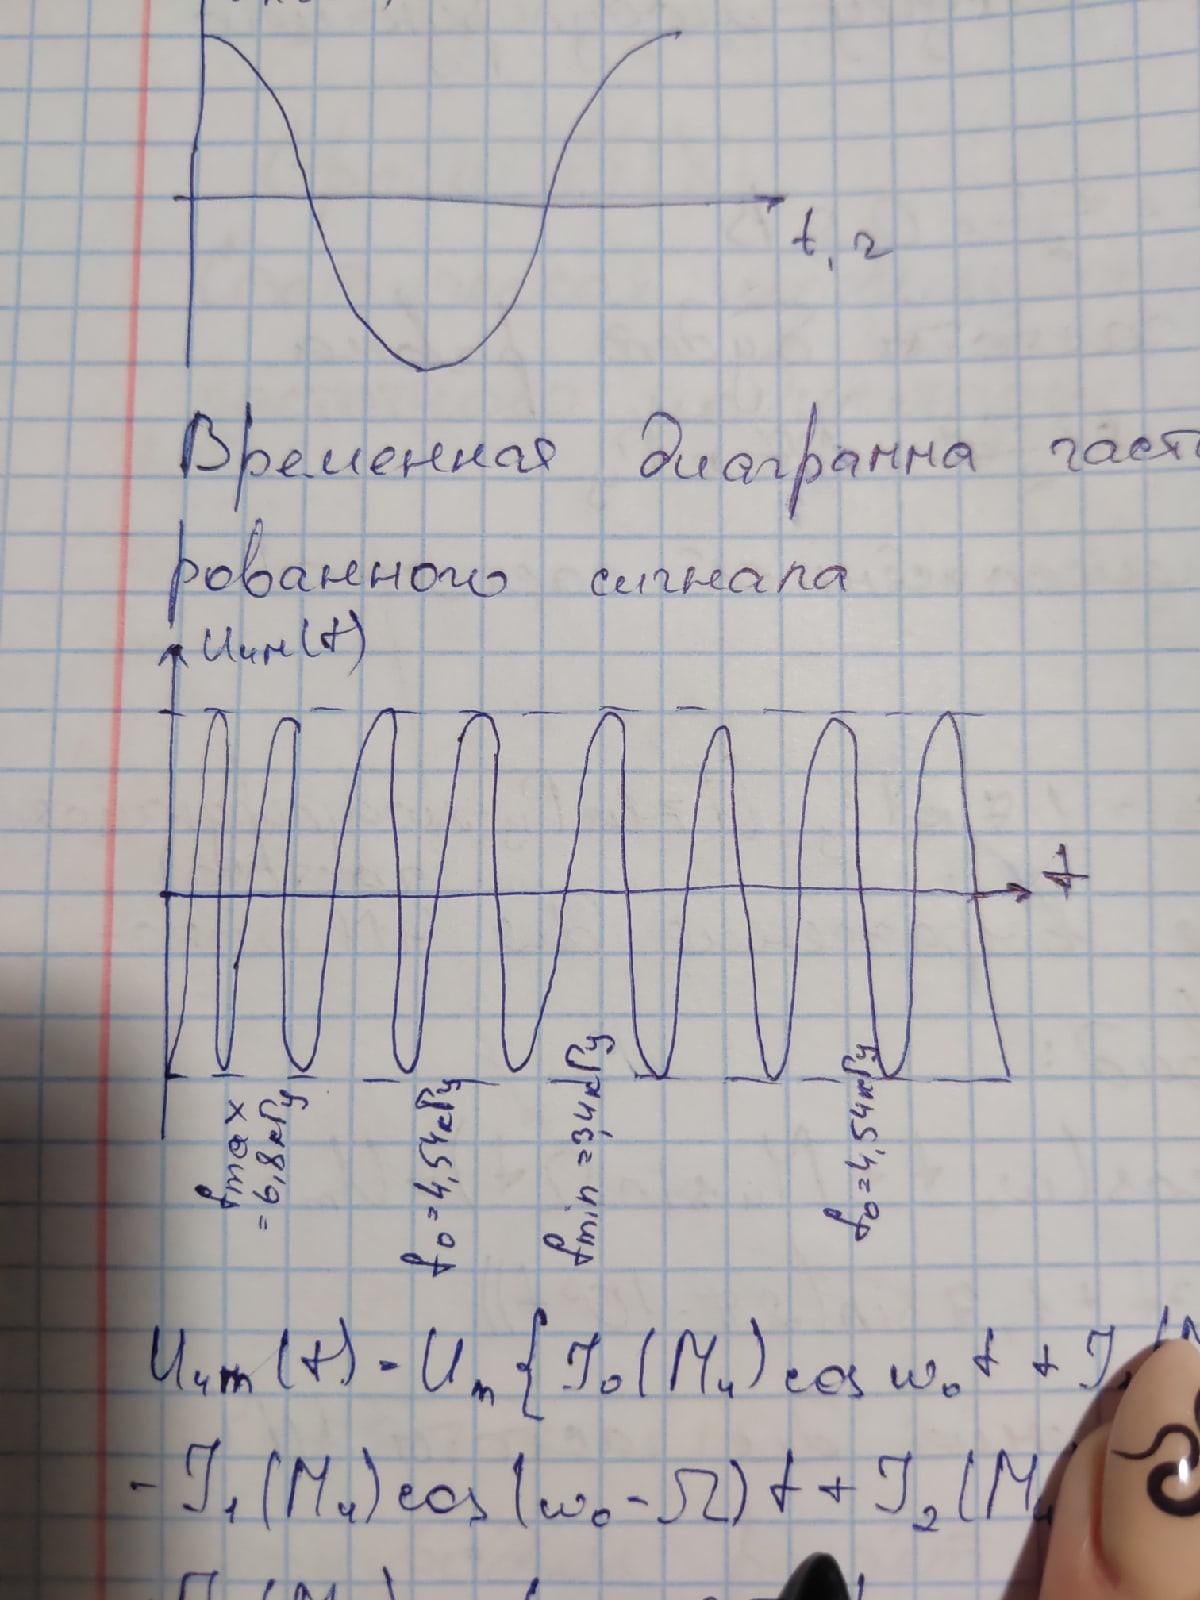 t, г
Временная диагранна част
рованного сигнала
Uчм(t)
t
fmax
= 6,8кГц
f₀ = 4,54кГц
fmin = 3,4кГц
f₀ = 4,54кГц
Uчm(t) = Um { J₀(Mч) cos ω₀t + J
- J₁(Mч) cos(ω₀ - Ω)t + J₂(M